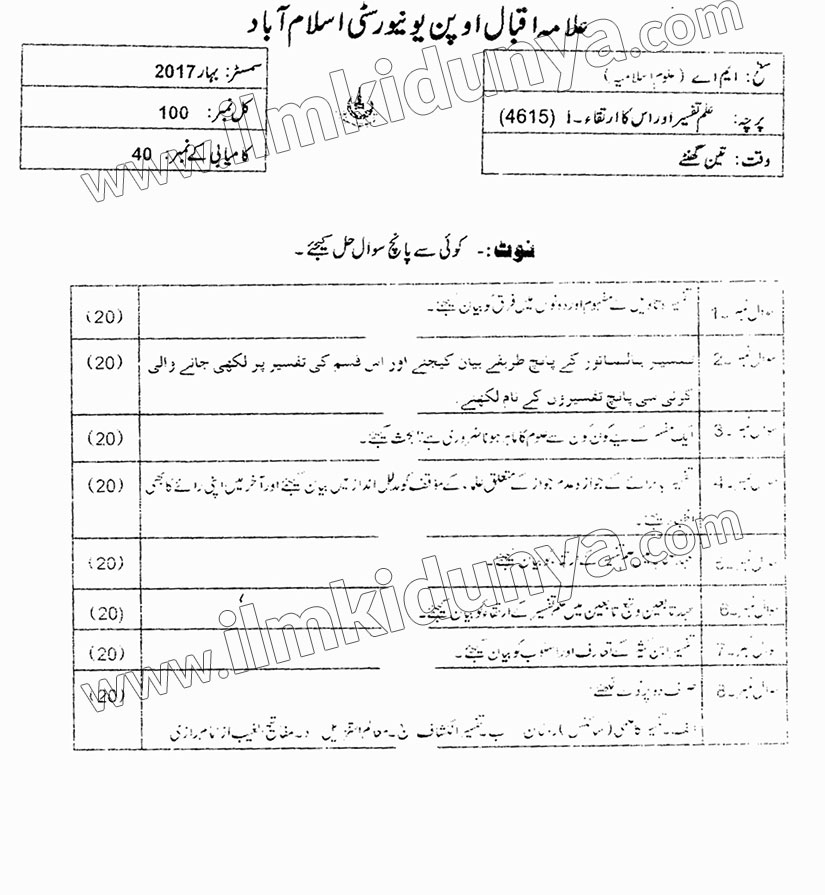 علامہ اقبال اوپن یونیورسٹی اسلام آباد
سطح: ایم اے (علوم اسلامیہ)
سمسٹر: بہار 2017
پرچہ: علم تفسیر اور اس کا ارتقاء۔I (4615)
کل نمبر: 100
وقت: تین گھنٹے
کامیابی کے نمبر: 40
www.ilmkidunya.com
نوٹ:- کوئی سے پانچ سوال حل کیجئے۔
سوال نمبر۔1 تفسیر و تاویل سے مفہوم اور دونوں میں فرق کو بیان کیجئے۔ (20)
سوال نمبر۔2 تفسیر بالماثور کے پانچ طریقے بیان کیجئے اور اس قسم کی تفسیر پر لکھی جانے والی (20)
کوئی سی پانچ تفسیروں کے نام لکھئے۔
سوال نمبر۔3 ایک مفسر کے لیے کون کون سے علوم کا ماہر ہونا ضروری ہے؟ بحث کیجئے۔ (20)
سوال نمبر۔4 تفسیر بالرائے کے جواز و عدم جواز کے متعلق علماء کے مؤقف کو مدلل انداز میں بیان کیجئے اور آخر میں اپنی رائے کا بھی (20)
اظہار کیجئے۔
سوال نمبر۔5 تفسیر کے ارتقاء کو بیان کیجئے۔ (20)
سوال نمبر۔6 عہد تابعین و تبع تابعین میں علم تفسیر کے ارتقاء کو بیان کیجئے۔ (20)
سوال نمبر۔7 تفسیر ابن کثیر کے تعارف اور اسلوب کو بیان کیجئے۔ (20)
سوال نمبر۔8 صرف دو پر نوٹ لکھئے: (20)
الف۔ تفسیر (سائنسی) رجحان ب۔ تفسیر الکشاف ج۔ معالم التنزیل د۔ مفاتیح الغیب از امام رازی
www.ilmkidunya.com